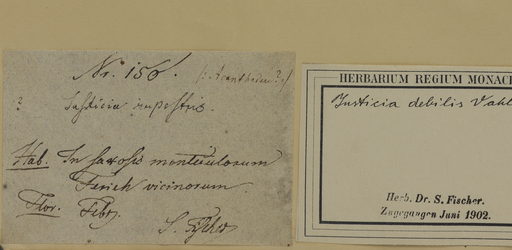 No. 156. (: Acantheae? :)
? Justicia rupestris.
Hab. In saxosis monticulorum
Ferich vicinorum.
Flor. Febr.
S. Fischer
HERBARIUM REGIUM MONAC
Justicia debilis Vahl
Herb. Dr. S. Fischer.
Zugegangen Juni 1902.